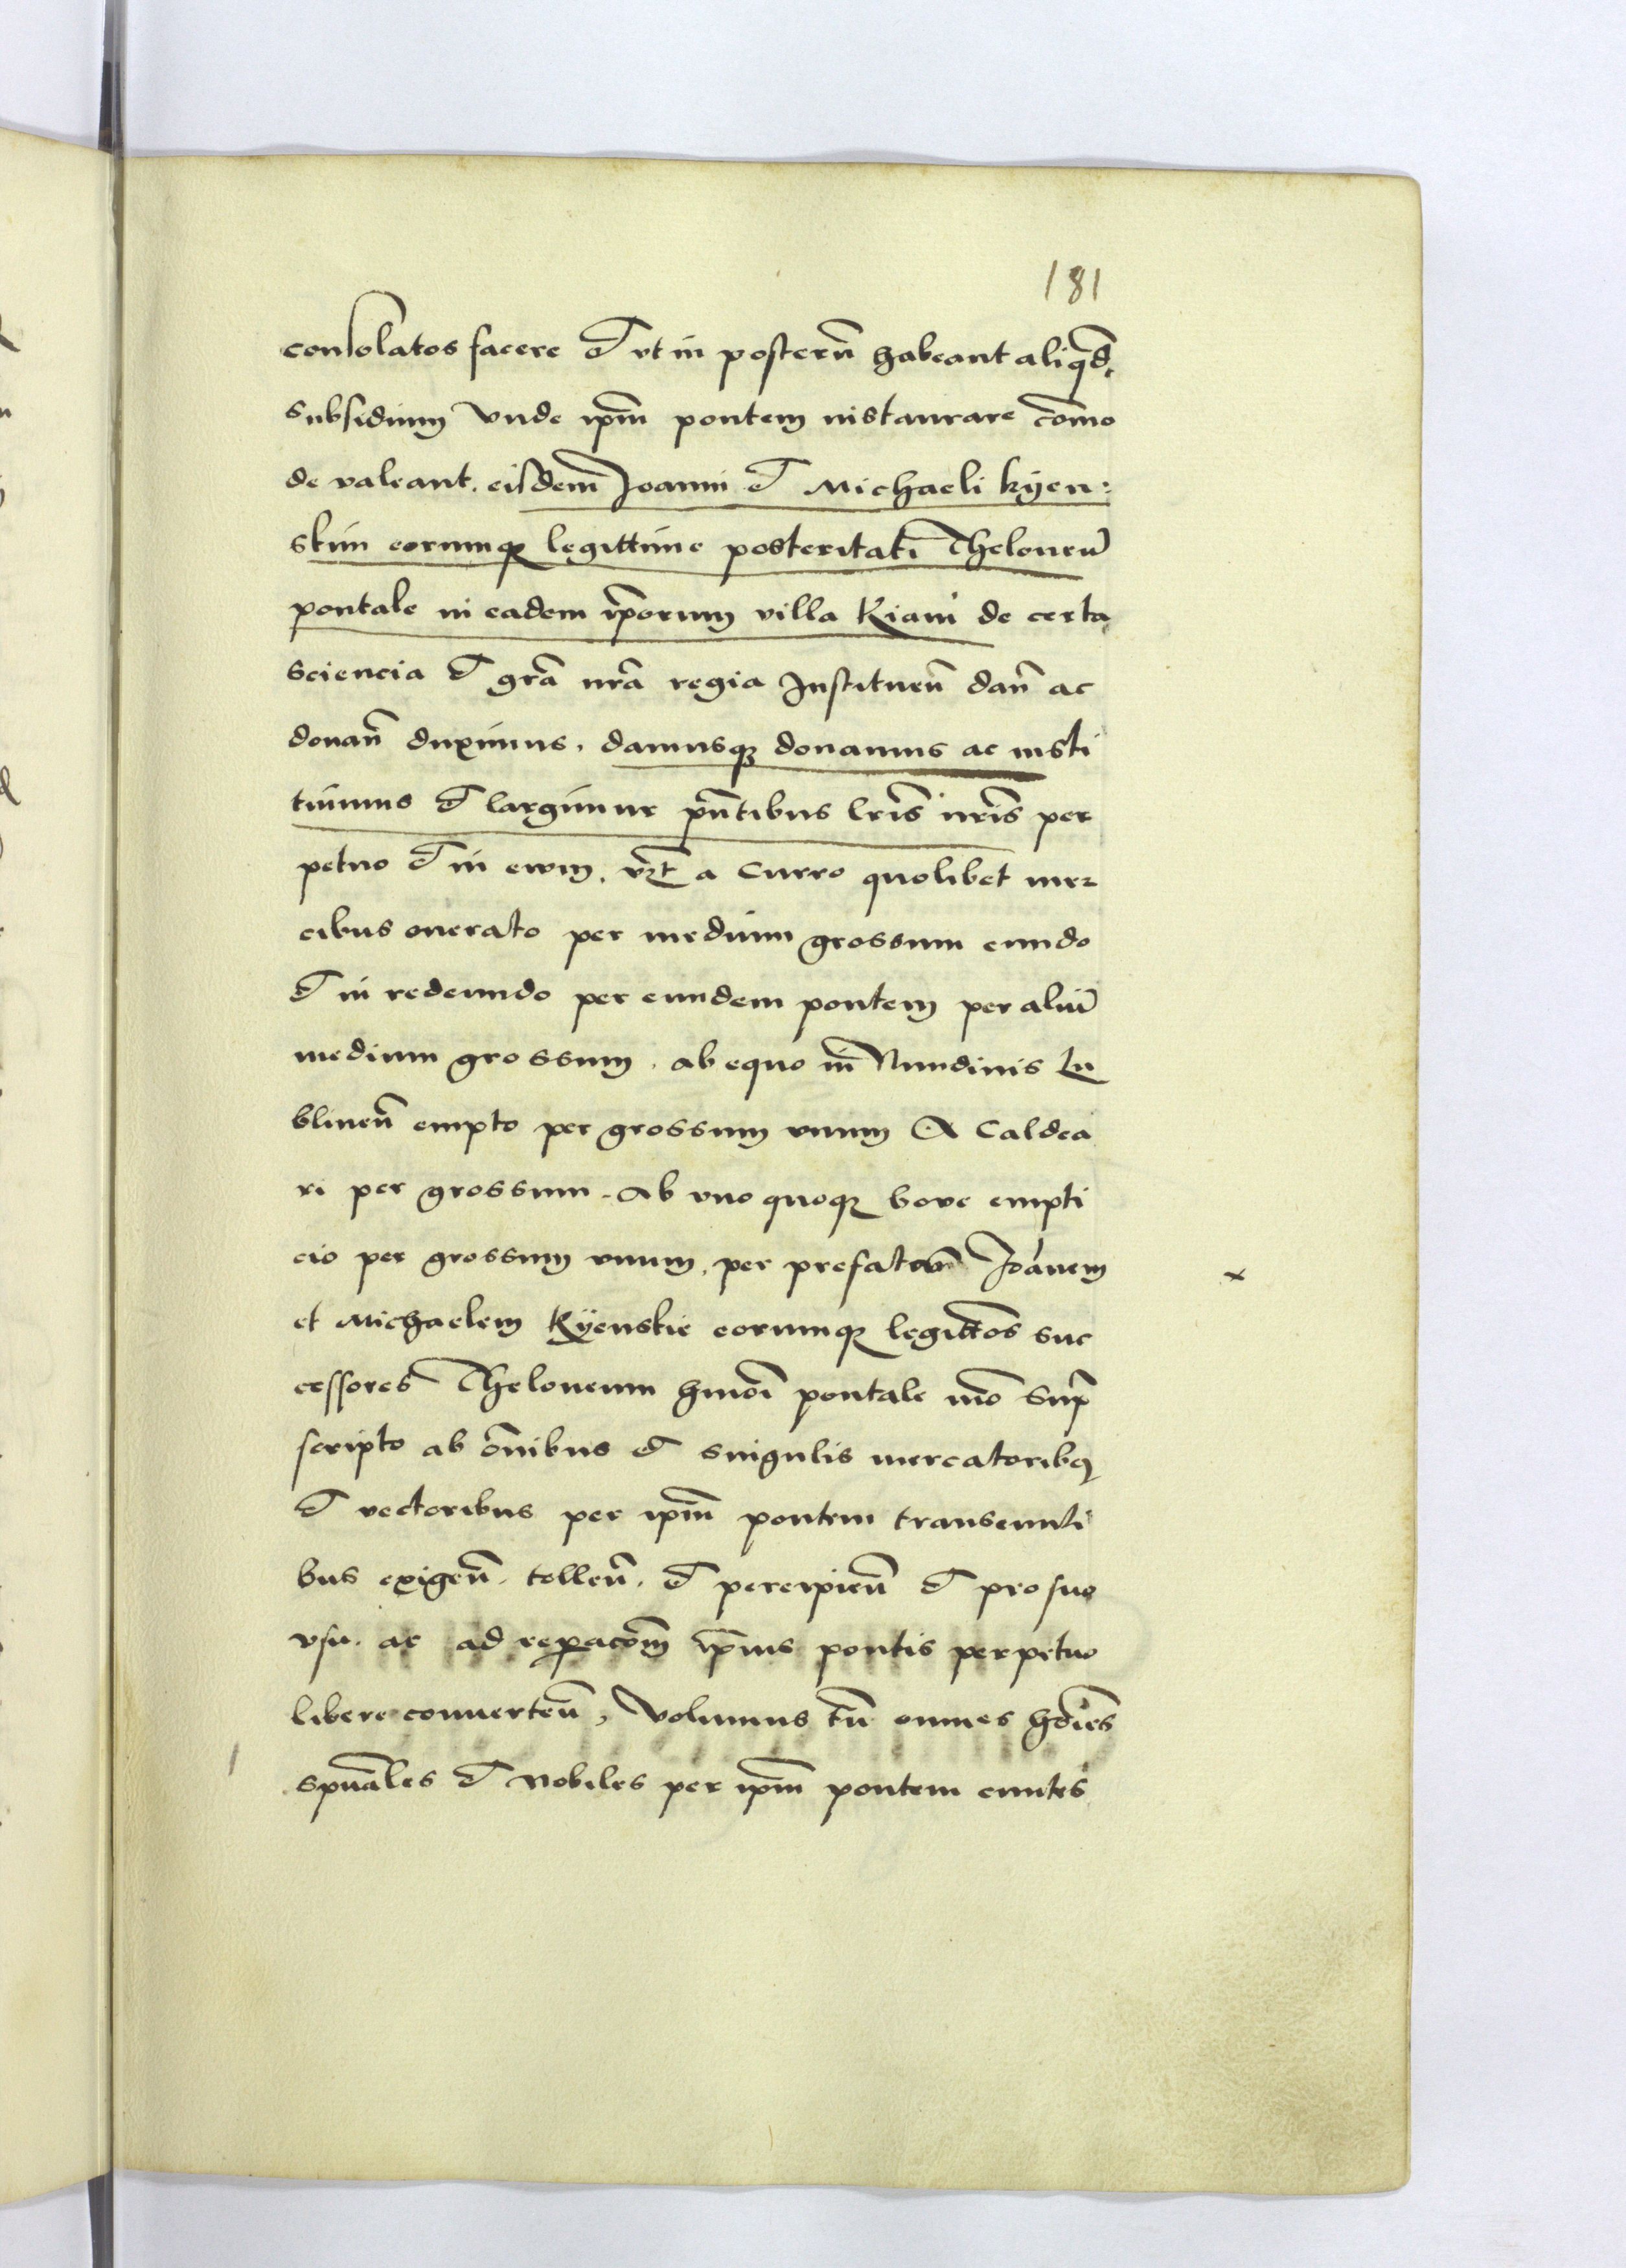 181
consolatos facere et vt in posterū habeant aliqd̄
subsidium vnde ip̄m pontem instaurare com̄o
de valeant. eisdem Joanni et Michaeli Kyen:
skim eorumqȝ legittime posteritati Theloneū
pontale in eadem ip̄orum villa Kiani de certa
sciencia et gr̄a nr̄a regia Instituen̄ dan̄ ac
donan̄ duximus. damusqȝ donamus ac insti
tuimus et largimur pn̄tibus lr̄is nr̄is per
petuo et in ewm. vꝫt a Curro quolibet mer
cibus onerato per medium grossum eundo
et in redeundo per eundem pontem per aliū
medium grossum. ab equo in Nundinis Lu
blinen̄ empto per grossum vnum A Caldea
ri per grossum. Ab vno quoqȝ bove empti
cio per grossum vnum. per prefatum Joānem
et Michaelem Kÿenskie eorumqȝ legittōs suc
cessores Theloneum hmōi pontale mō supͣ
scripto ab om̄nibus et singulis mercatoribꝯ
et vectoribus per ip̄m pontem transeunti
bus exigen̄. tollen̄. et percipien̄ et pro suo
vsu. ac ad repacōm̄ ip̄ius pontis perpetuo
libere conuerten̄, Volumus tn̄ omnes hōīes
spūāles et Nobiles per ip̄m pontem euntes